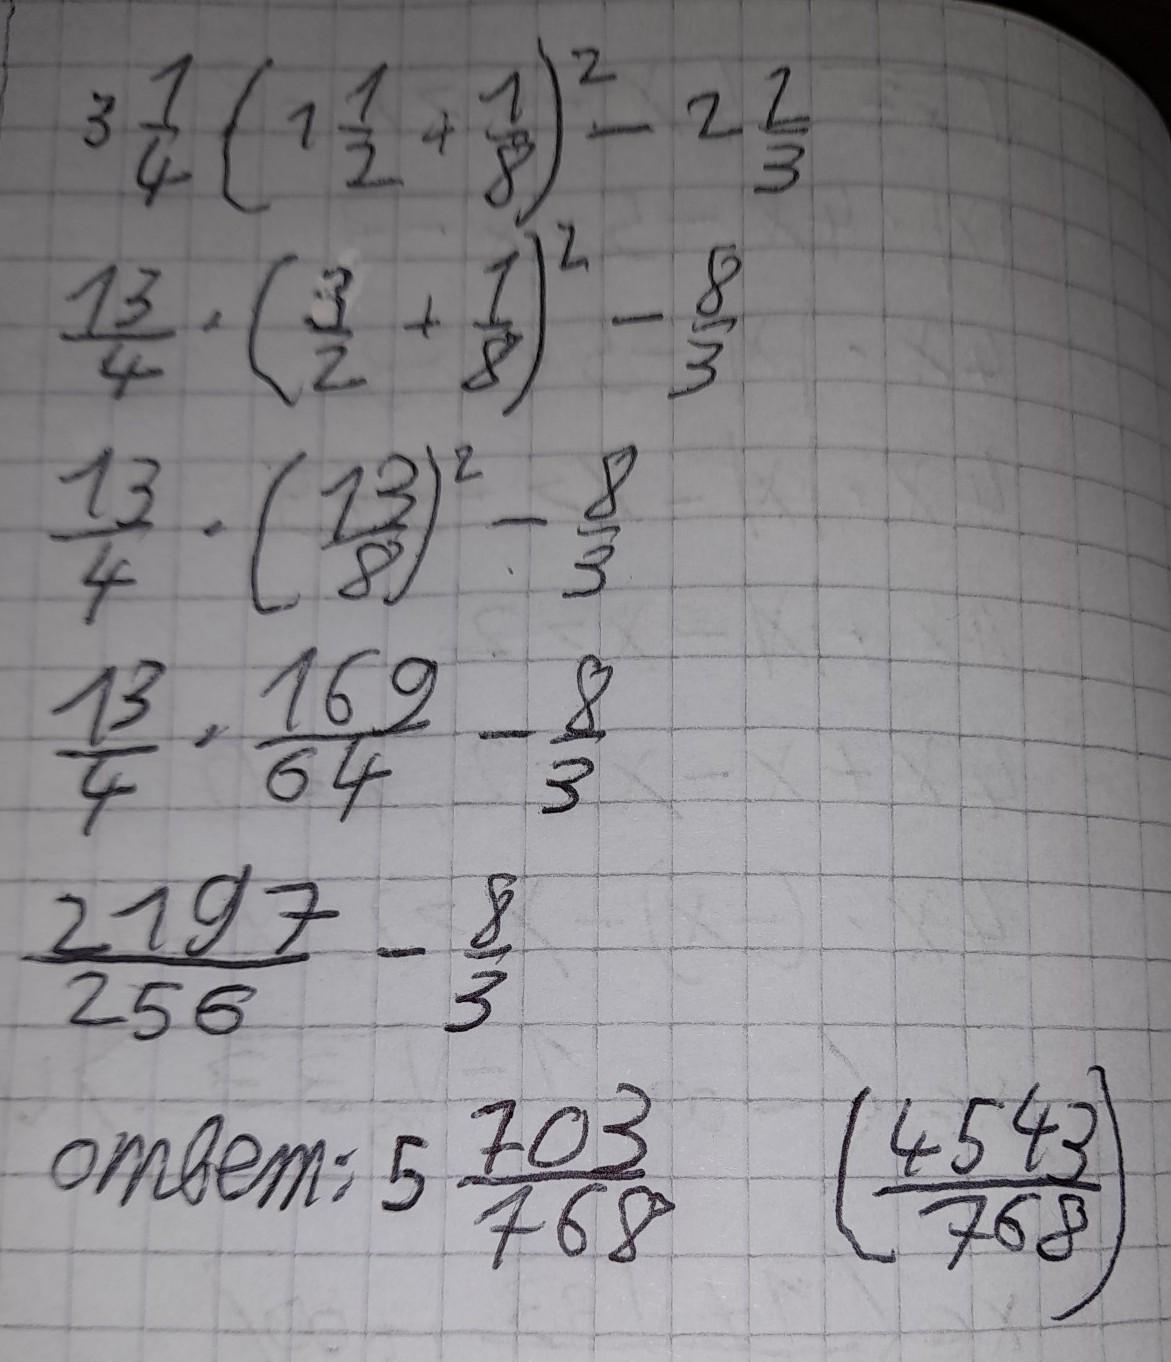 3 1/4 (1 1/2 + 1/8)² - 2 2/3
13/4 · (3/2 + 1/8)² - 8/3
13/4 · (13/8)² - 8/3
13/4 · 169/64 - 8/3
2197/256 - 8/3
ответ: 5 703/768 (4543/768)